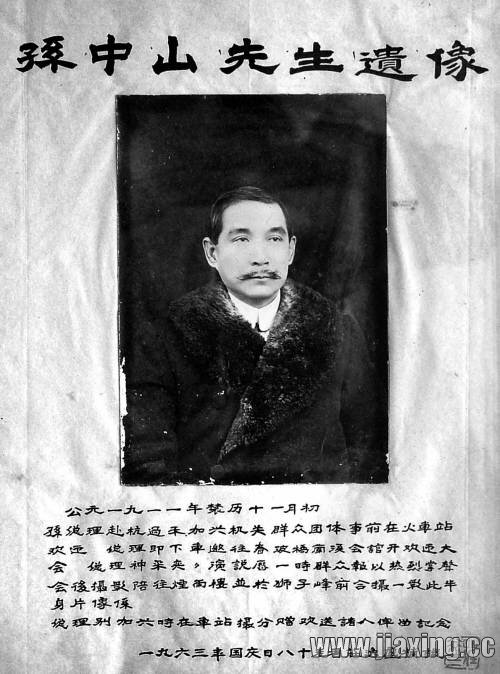 孫中山先生遺像
公元一九一一年历十一月初
孫总理赴杭過禾加兴机关群众团体事前在火車站
欢迎 总理即下車邀往春波橋会館开欢迎大
会 总理神采奕演説歷一時群众輒以热烈掌聲
会後攝影陪往煙雨樓並於狮子峰前合撮一影此半
身片像係
总理别加兴時在車站撮分赠欢送諸人俾留記念
一九六三年国庆日八十
www.jiaxing.cc